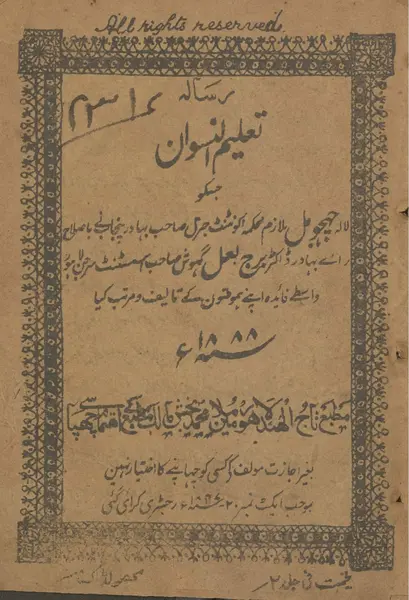 All rights reserved
رسالہ
تعلیم النسوان
جسکو
لالہ چھجو مل ملازم محکمہ اکونٹنٹ جنرل صاحب بہادر پنجاب نے باصلاح
راے بہادر ڈاکٹر برج لعل گہوش صاحب اسسٹنٹ سرجن لاہور
واسطے فایدہ اپنے ہموطنون کے تالیف و مرتب کیا
سنہ ۱۸۸۸ء
مطبع تاج الہند لاہور مین محمد بخش مالک مطبع اہتمام سے چھپا
بغیر اجازت مولف کے کسی کو چھاپنے کا اختیار نہین
بموجب ایکٹ نمبر ۲۰ سنہ ۱۸۴۷ء رجسٹری کرائی گئی
قیمت فی جلد ۲
محصول ڈاک